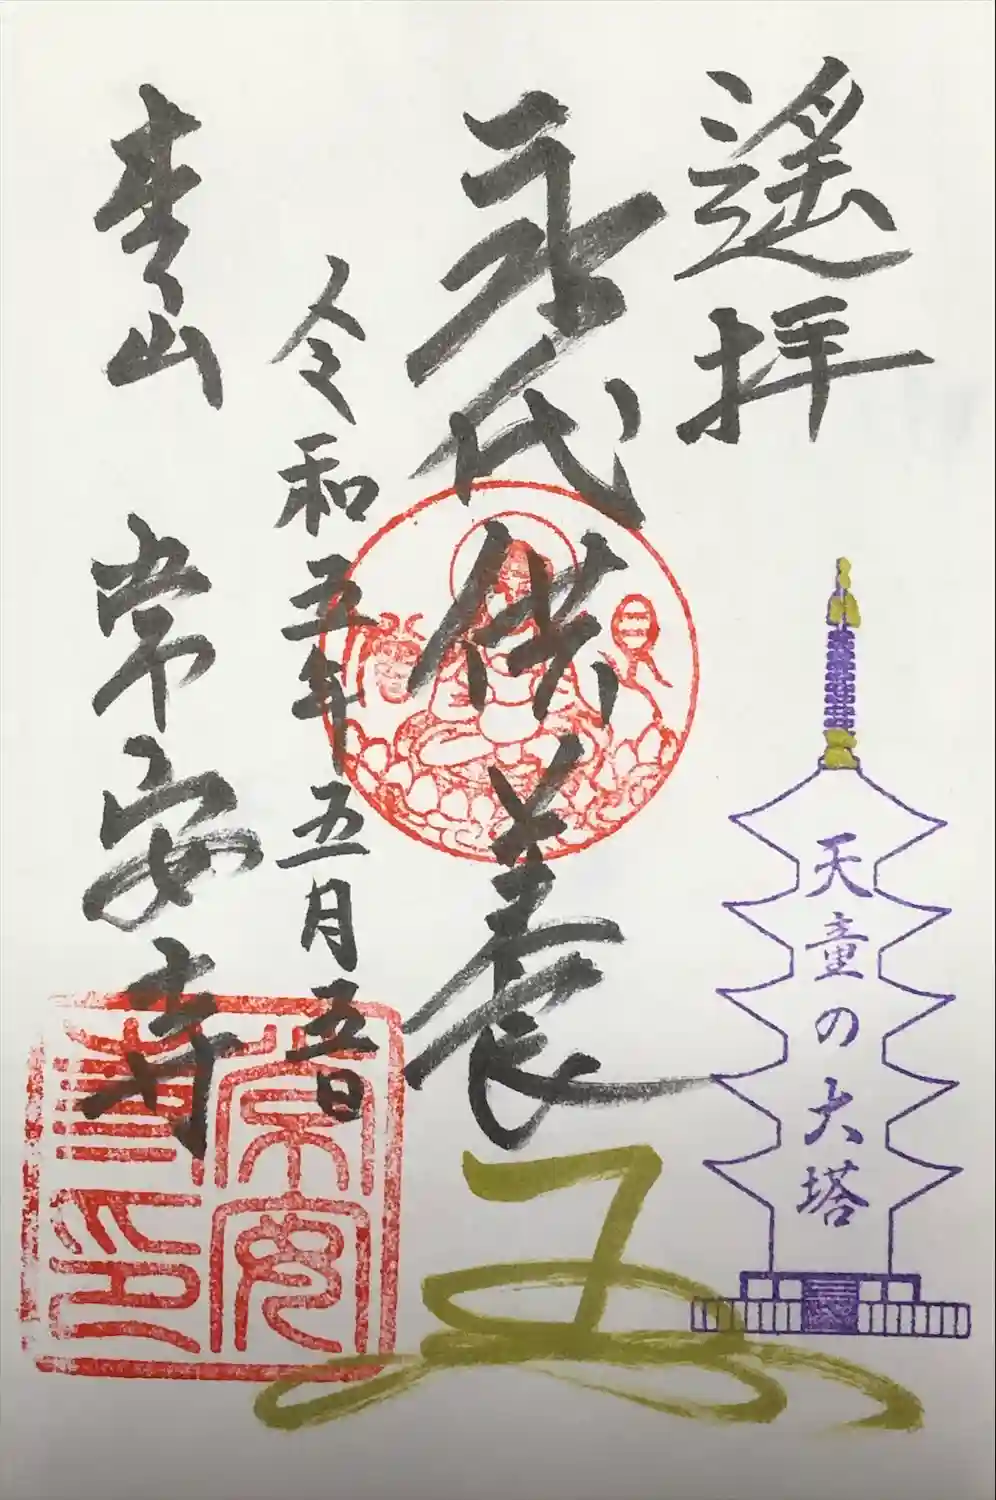 遥拝
永代供養
令和五年五月五日
山 常安寺
天童の大塔
常安寺印